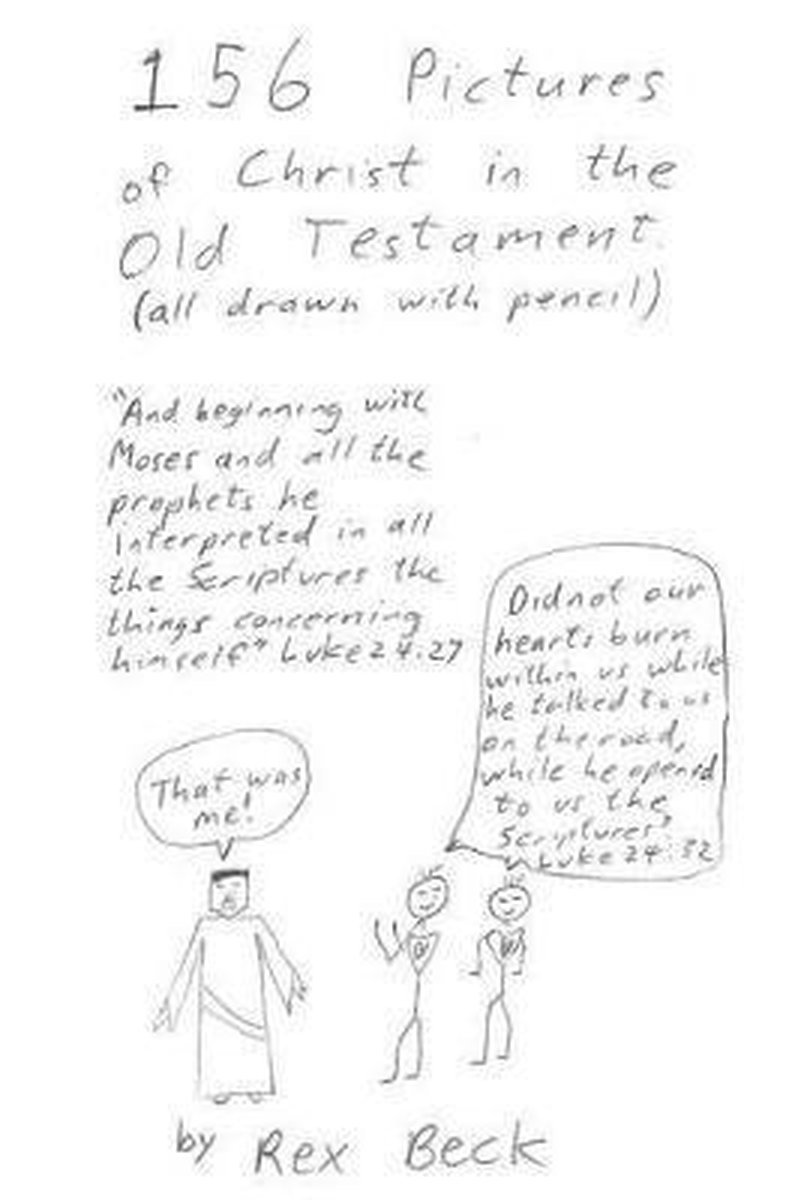 156 Pictures
of Christ in the
Old Testament
(all drawn with pencil)
"And beginning with
Moses and all the
prophets he
interpreted in all
the Scriptures the
things concerning
himself" Luke 24:27
Did not our
hearts burn
within us while
he talked to us
on the road,
while he opened
to us the
Scriptures?
Luke 24:32
That was
me!
by Rex Beck